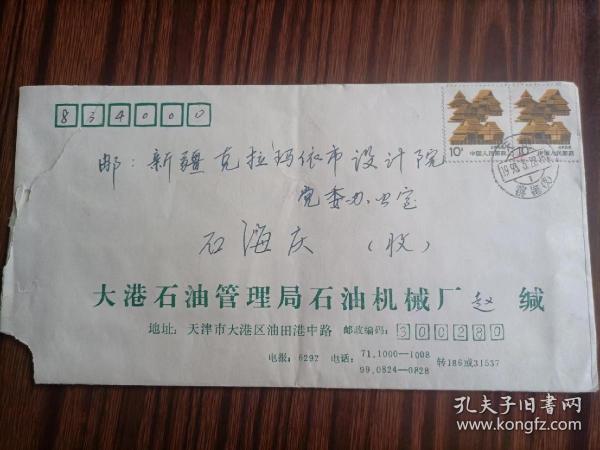 834000
10分 中国人民邮政
10分 中国人民邮政
邮：新疆克拉玛依市设计院
党委办公室
石海庆（收）
大港石油管理局石油机械厂赵 缄
地址：天津市大港区油田港中路 邮政编码：300280
电报：6292 电话：71.1000—1008
99.0824—0828
转186或31537
孔夫子旧书网
www.kongfz.com